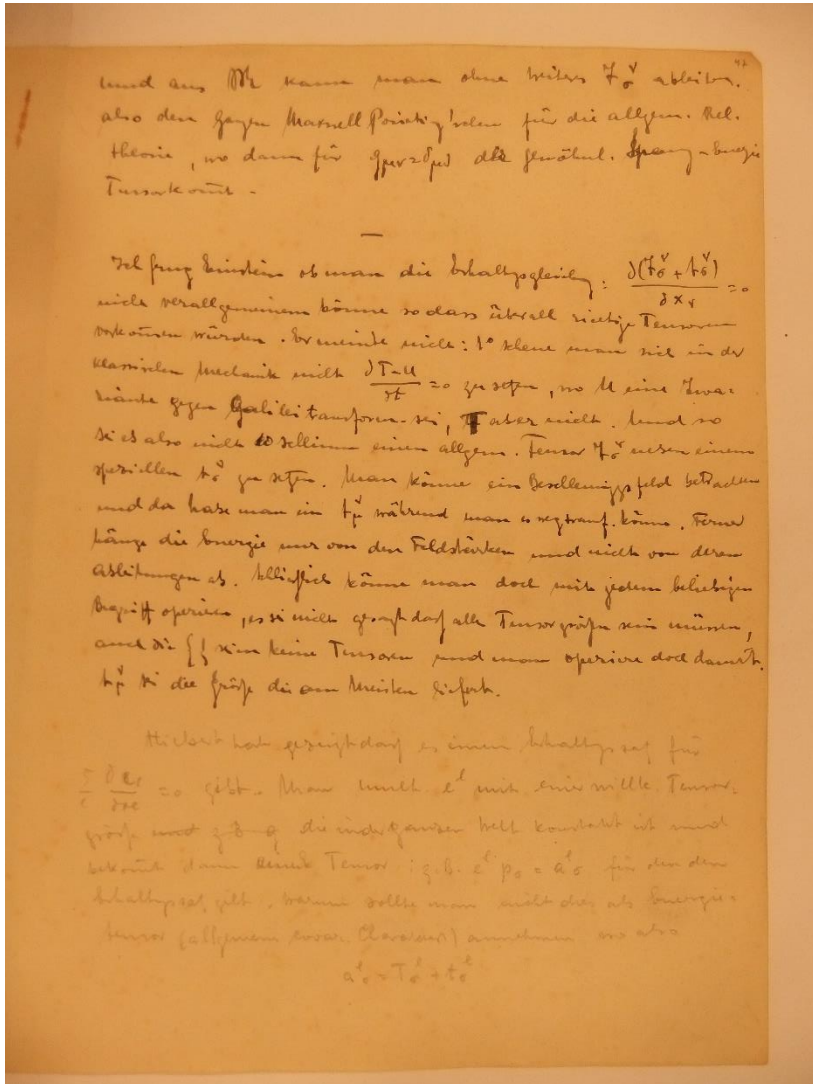 47
und aus 𝔐 kann man ohne weiters 𝔗_σ^ν ableiten.
also den ganzen Maxwell Poynting'schen für die allgem. Rel.
theorie, wo dann für g_μν = δ_μν der gewöhnl. Spang-Energie
Tensor komt -
—
Ich frug Einstein ob man die Erhaltgsgleichg: ∂(𝔗_σ^ν + t_σ^ν)/∂x_ν = 0
nicht verallgemeinern könne so dass überall richtige Tensoren
vorkomen würden. Er meinte nicht: 1° scheue man sich in der
klassischen Mechanik nicht ∂T-U/∂t = 0 zu setzen, wo U eine Inva-
riante gegen Galileitransform. sei, T aber nicht. Und so
sei es also nicht so schlimm einen allgem. Tensor 𝔗_σ^ν neben einem
speziellen t_σ^ν zu setzen. Man könne ein Beschleuniggsfeld betrachten
und da habe man ein t_μ^ν während man es wegtransf. könne. Ferner
hänge die Energie nur von den Feldstärken und nicht von deren
Ableitungen ab. Schließlich könne man doch mit jedem beliebigen
Begriff operieren, es sei nicht gesagt daß alle Tensorgrößen sein müssen,
auch die { } seien keine Tensoren und man operiere doch damit.
t_μ^ν sei die Größe die am Meisten liefert.
Hilbert hat gezeigt daß es einen Erhaltgssatz für
= 0 gibt. Man e^l mit einer willk. Tensor-
größe die in der ganzen Welt konstant ist und
bekomt dann Tensor : z.B. e^l p_σ = a_σ^l für den der
Erhaltgssatz gilt. Warum sollte man nicht dies als Energie-
tensor (allgemein kovar. Charakter) annehmen wo also
a_σ^l = T_σ^l + t_σ^l